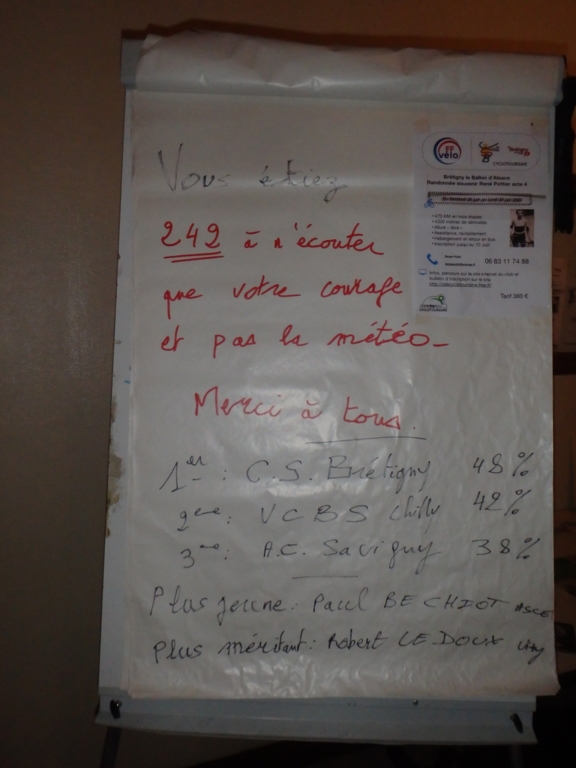 Vous étiez
242 à n'écouter
que votre courage
et pas la météo_
Merci à tous.
1er : C.S. Brétigny 48%
2ème : VCBS Chilly 42%
3ème : A.C. Savigny 38%
Plus jeune : Paul BECHIOT ASCE
Plus méritant : Robert LEDOUX
FF vélo
CYCLOTOURISME
Brétigny le Ballon d'Alsace
Randonnée souvenir René Pothier acte 4
• Assistance, ravitaillement
• Hébergement et retour en bus
06 83 11 74 88
Tarif 380 €